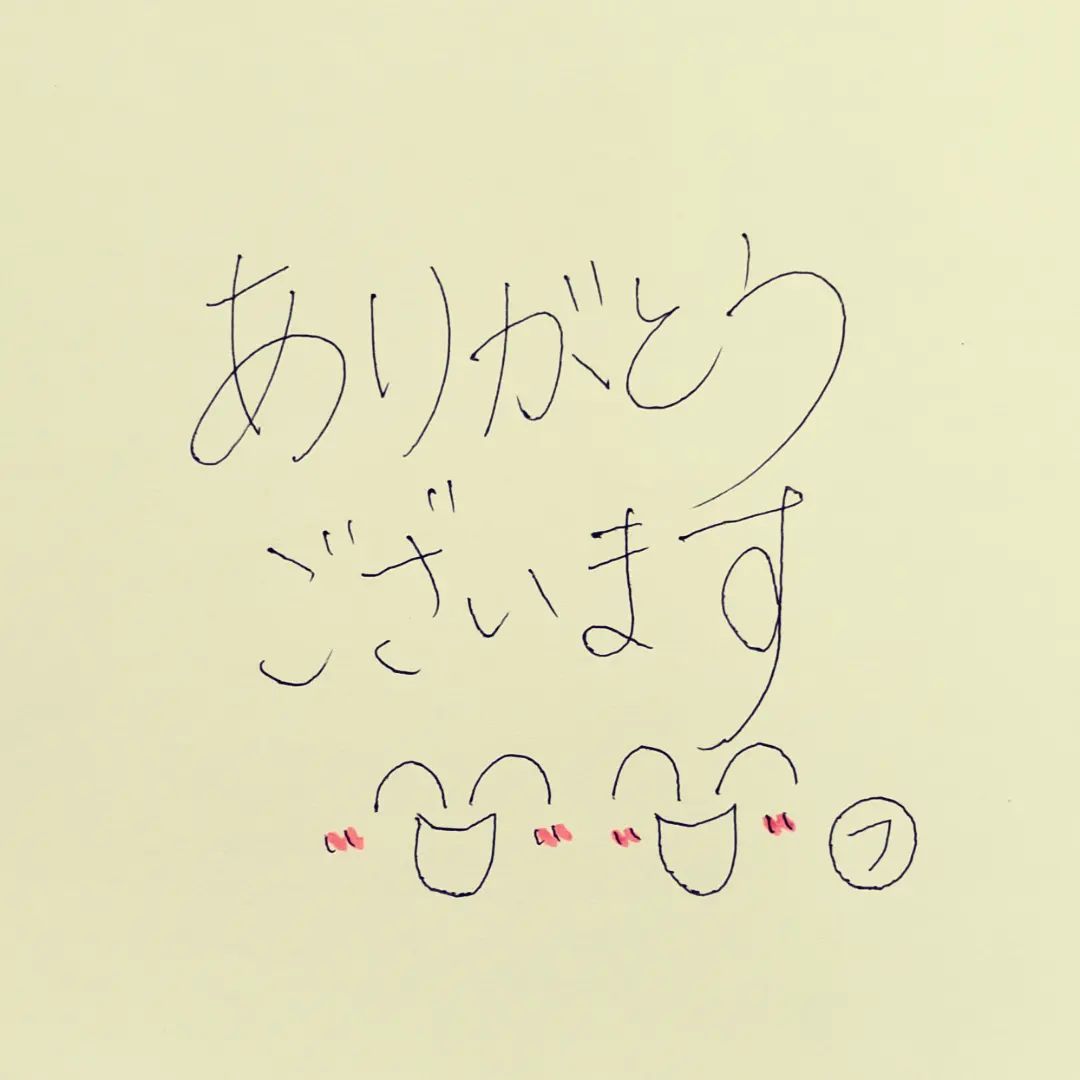 ありがとう
ございます
フ